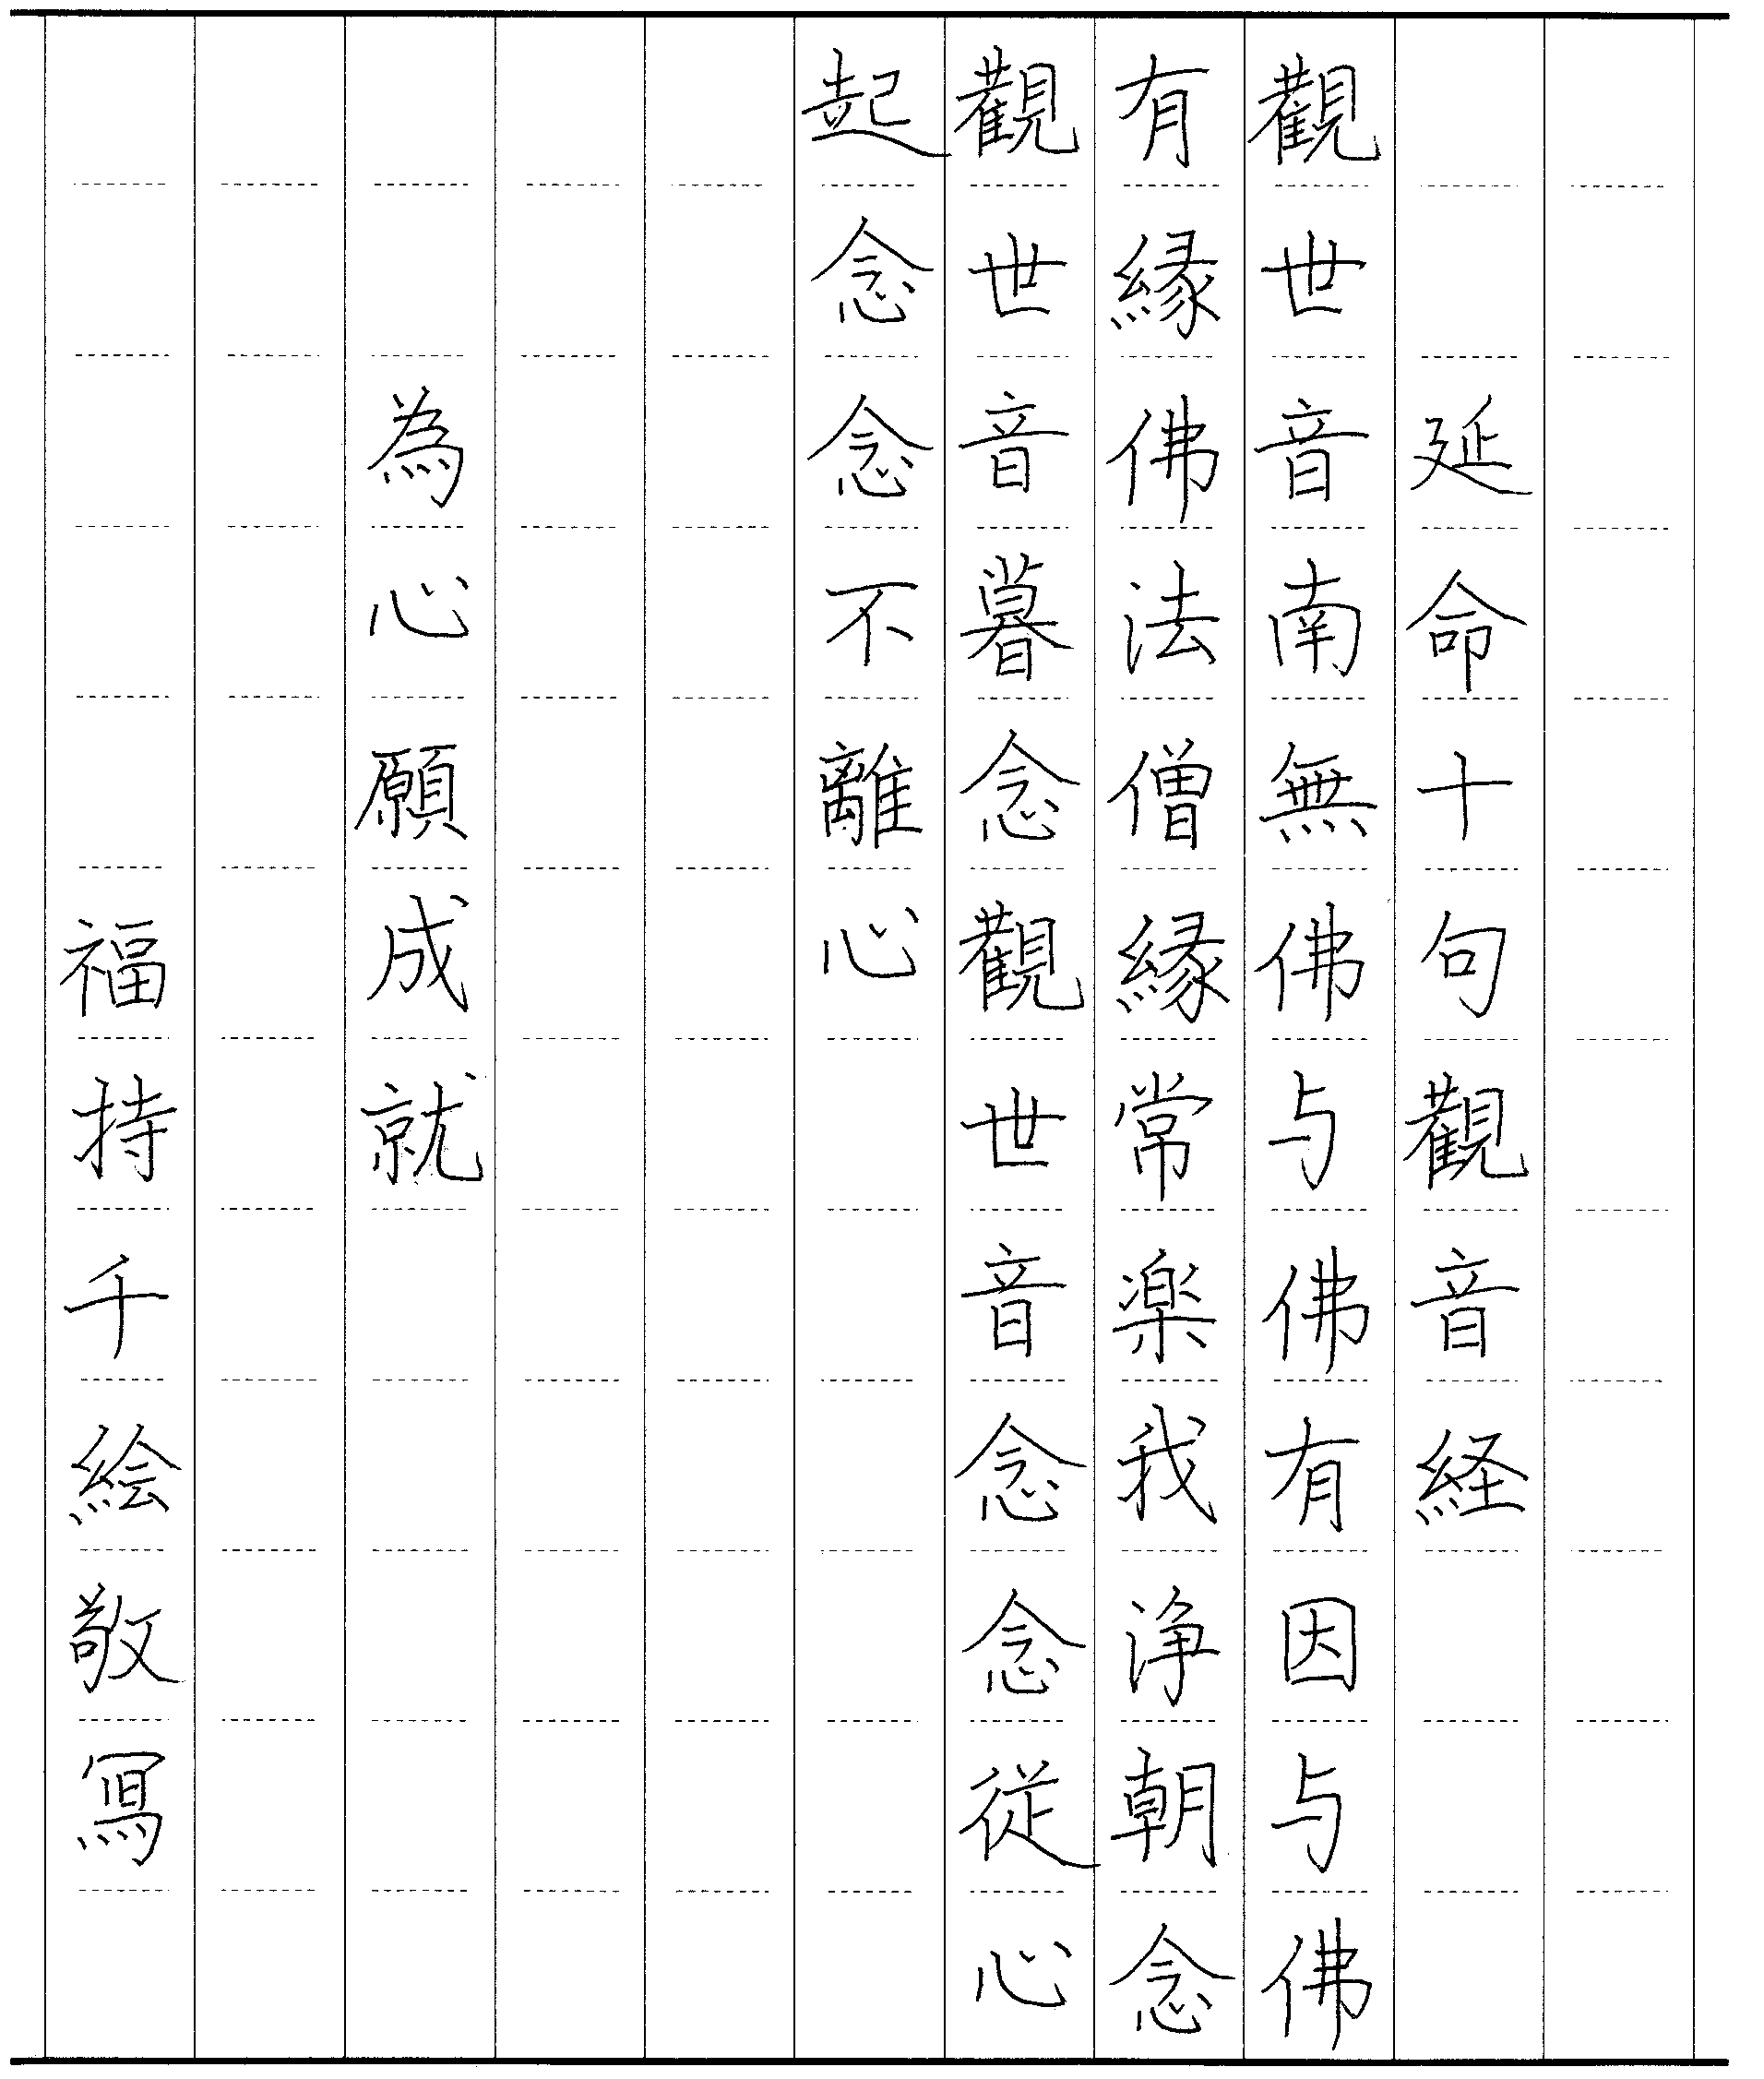 延命十句觀音経
觀世音南無佛与佛有因与佛
有縁佛法僧縁常楽我浄朝念
觀世音暮念觀世音念念従心
起念念不離心
為心願成就
福持千絵敬冩